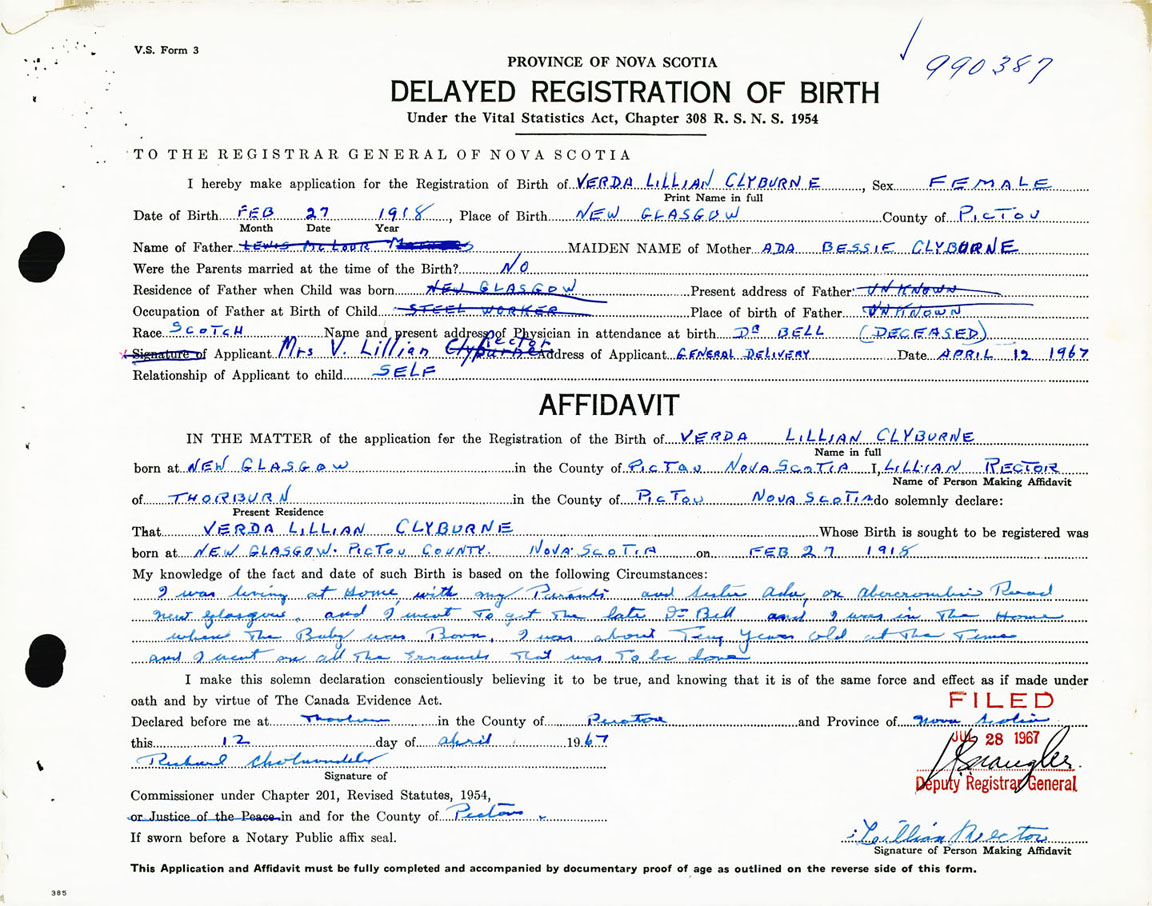 V.S. Form 3
990387
PROVINCE OF NOVA SCOTIA
DELAYED REGISTRATION OF BIRTH
Under the Vital Statistics Act, Chapter 308 R. S. N. S. 1954
TO THE REGISTRAR GENERAL OF NOVA SCOTIA
I hereby make application for the Registration of Birth of VERDA LILLIAN CLYBURNE, Sex FEMALE
Print Name in full
Date of Birth FEB 27 1918, Place of Birth NEW GLASGOW County of PICTOU
Month Date Year
Name of Father LEWIS MAIDEN NAME of Mother ADA BESSIE CLYBURNE
Were the Parents married at the time of the Birth? NO
Residence of Father when Child was born NEW GLASGOW Present address of Father UNKNOWN
Occupation of Father at Birth of Child STEEL WORKER Place of birth of Father UNKNOWN
Race SCOTCH Name and present address of Physician in attendance at birth DR BELL (DECEASED)
Signature of Applicant Mrs V. Lillian Clyburne Rector Address of Applicant GENERAL DELIVERY Date APRIL 12 1967
Relationship of Applicant to child SELF
AFFIDAVIT
IN THE MATTER of the application for the Registration of the Birth of VERDA LILLIAN CLYBURNE
Name in full
born at NEW GLASGOW in the County of PICTOU NOVA SCOTIA I, LILLIAN RECTOR
Name of Person Making Affidavit
of THORBURN in the County of PICTOU NOVA SCOTIA do solemnly declare:
Present Residence
That VERDA LILLIAN CLYBURNE Whose Birth is sought to be registered was
born at NEW GLASGOW. PICTOU COUNTY. NOVA SCOTIA on FEB 27 1918
My knowledge of the fact and date of such Birth is based on the following Circumstances:
I was living at Home, with my Parants and sister Ada, on Abercrombie Road
New Glasgow, and I went To get the late Dr Bell and I was in The Home
when The Baby was Born, I was about Teny Years old at The Time
and I went on all The errands That was To be done
I make this solemn declaration conscientiously believing it to be true, and knowing that it is of the same force and effect as if made under
oath and by virtue of The Canada Evidence Act.
FILED
Declared before me at Thorburn in the County of Pictou and Province of Nova Scotia
this 12 day of April 1967
JUL 28 1967
Richard
Signature of
Deputy Registrar General
Commissioner under Chapter 201, Revised Statutes, 1954,
or Justice of the Peace in and for the County of Pictou
If sworn before a Notary Public affix seal.
Lillian Rector
Signature of Person Making Affidavit
This Application and Affidavit must be fully completed and accompanied by documentary proof of age as outlined on the reverse side of this form.
385